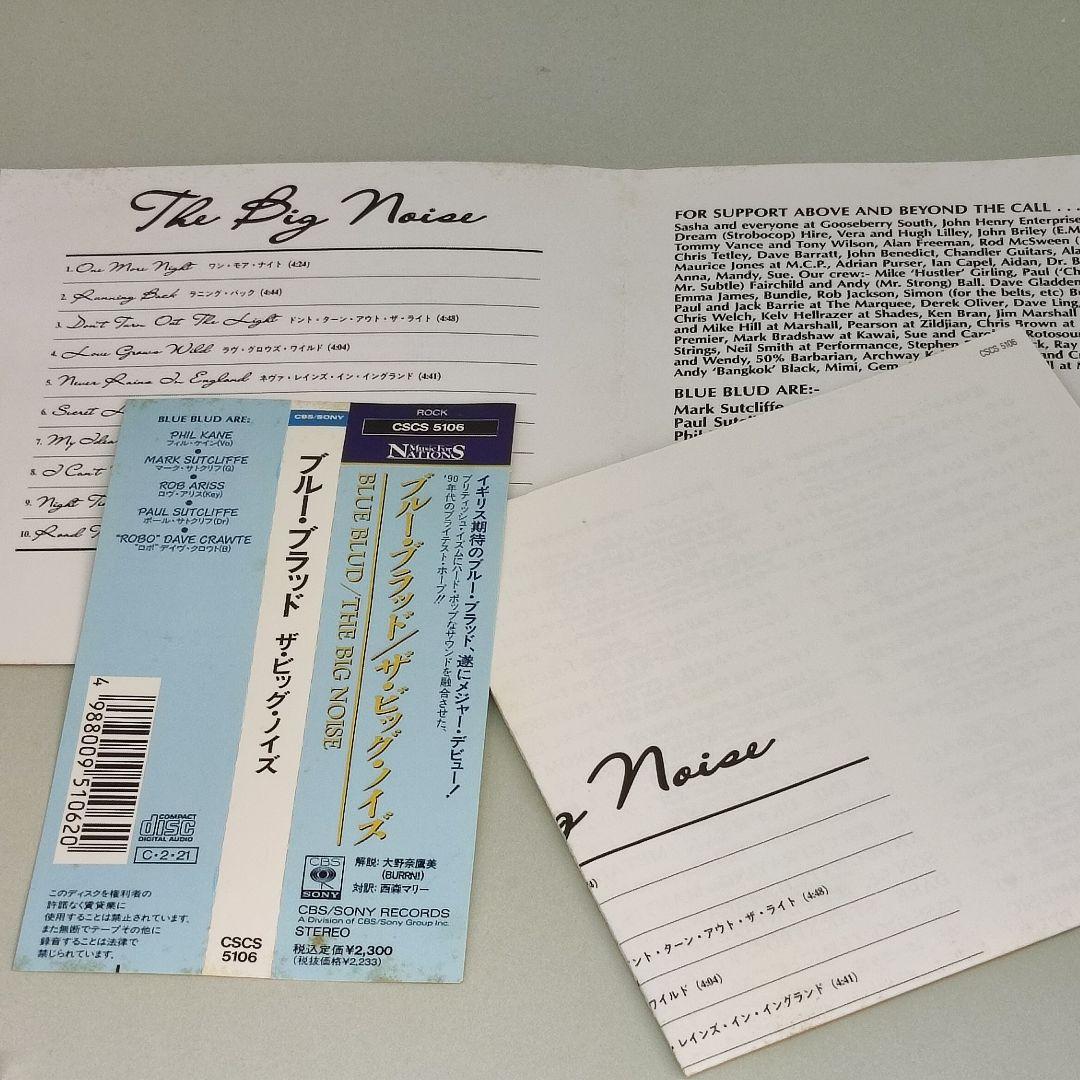 The Big Noise
1. One More Night ワン・モア・ナイト (4:24)
2. Running Back ラニング・バック (4:44)
3. Don't Turn Out The Light ドント・ターン・アウト・ザ・ライト (4:48)
4. Love Grows Wild ラヴ・グロウズ・ワイルド (4:04)
5. Never Rains In England ネヴァ・レインズ・イン・イングランド (4:41)
6. Secret
7. My
8. I Can't
9. Night
10. Road
FOR SUPPORT ABOVE AND BEYOND THE CALL . . .
Sasha and everyone at Gooseberry South, John Henry Enterprise
Dream (Strobocop) Hire, Vera and Hugh Lilley, John Briley (E.M
Tommy Vance and Tony Wilson, Alan Freeman, Rod McSween (
Chris Tetley, Dave Barratt, John Benedict, Chandler Guitars, Ala
Maurice Jones at M.C.P., Adrian Purser, Ian Capel, Aidan, Dr. B
Anna, Mandy, Sue. Our crew:- Mike 'Hustler' Girling, Paul ('Ch
Mr. Subtle) Fairchild and Andy (Mr. Strong) Ball. Dave Gladden
Emma James, Bundle, Rob Jackson, Simon (for the belts, etc) Bu
Paul and Jack Barrie at The Marquee, Derek Oliver, Dave Ling,
Chris Welch, Kelv Hellrazer at Shades, Ken Bran, Jim Marshall
and Mike Hill at Marshall, Pearson at Zildjian, Chris Brown at
Premier, Mark Bradshaw at Kawai, Sue and Rotosou
Strings, Neil Smith at Performance, Stephen Ray
and Wendy, 50% Barbarian, Archway
Andy 'Bangkok' Black, Mimi, Gem
BLUE BLUD ARE:-
Mark Sutcliffe
Paul
BLUE BLUD ARE:
PHIL KANE
フィル・ケイン(Vo)
●
MARK SUTCLIFFE
マーク・サトクリフ(G)
●
ROB ARISS
ロヴ・アリス(Key)
●
PAUL SUTCLIFFE
ポール・サトクリフ(Dr)
●
"ROBO" DAVE CRAWTE
"ロボ"デイヴ・クロウト(B)
4 988009 510620
COMPACT
disc
DIGITAL AUDIO
C・2・21
このディスクを権利者の
許諾なく賃貸業に
使用することは禁止されています。
また無断でテープその他に
録音することは法律で
禁じられています。
CBS/SONY
ブルー・ブラッド ザ・ビッグ・ノイズ
CSCS
5106
ROCK
CSCS 5106
Music For
NATIONS
イギリス期待のブルー・ブラッド、遂にメジャー・デビュー!
ブリティッシュ・イズムにハード・ポップなサウンドを融合させた、
'90年代のブライテスト・ホープ!!
ブルー・ブラッド/ザ・ビッグ・ノイズ
BLUE BLUD/THE BIG NOISE
CBS
SONY
解説:大野奈鷹美
(BURRN!)
対訳:西森マリー
CBS/SONY RECORDS
A Division of CBS/Sony Group Inc.
STEREO
税込定価¥2,300
(税抜価格¥2,233)
CSCS 5106
g Noise
ント・ターン・アウト・ザ・ライト (4:48)
ワイルド (4:04)
・レインズ・イン・イングランド (4:41)